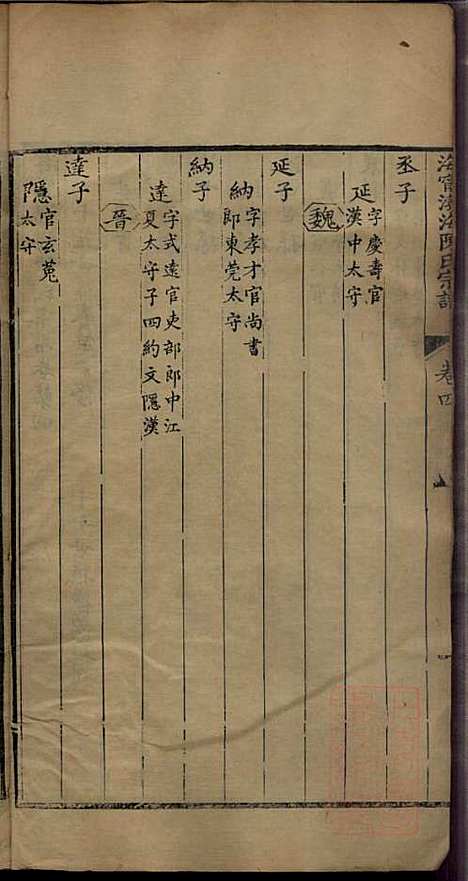 海寧渤海陳氏宗譜 卷四
丞子
延 字慶壽官
漢中太守
魏
延子
納 字孝才官尚書
郎東莞太守
納子
達 字式遠官吏部郎中江
夏太守子四約文隱漢
晉
達子
隱 官玄菟
太守